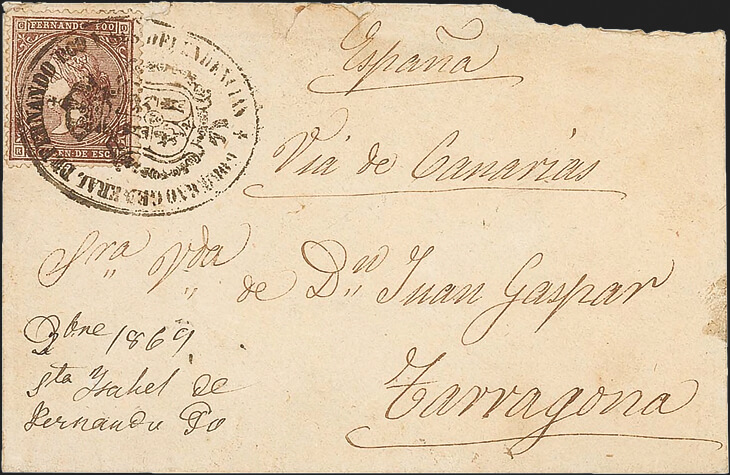 FERNANDO POO
EN. DE ESC
GOBIERNO GENERAL DE FERNANDO POO Y SUS DEPENDENCIAS
España
Via de Canarias
Sra Vda de Dn Juan Gaspar
Tarragona
Dbre 1869
Sta Isabel de
Fernando Po